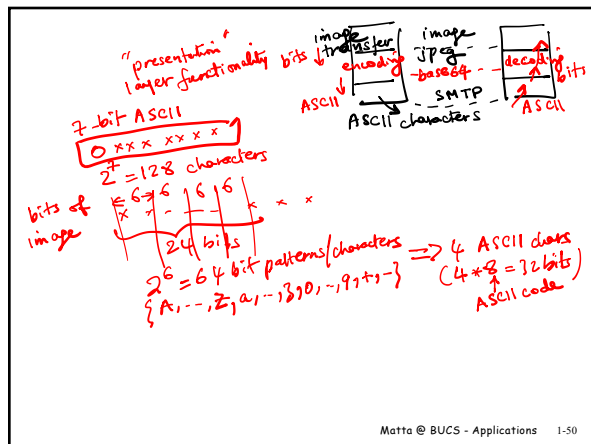 "presentation"
layer functionality
image transfer
bits
encoding
ASCII
image
jpeg
base64
SMTP
decoding
bits
ASCII
ASCII characters
7-bit ASCII
0 xxx xxxx
2^7 = 128 characters
bits of image
6 6 6 6
x - - - - x x x
24 bits
2^6 = 64 bit patterns/characters => 4 ASCII chars
{A, --, Z, a, --, z, 0, --, 9, +, -}
(4 * 8 = 32 bits)
ASCII code
Matta @ BUCS - Applications 1-50